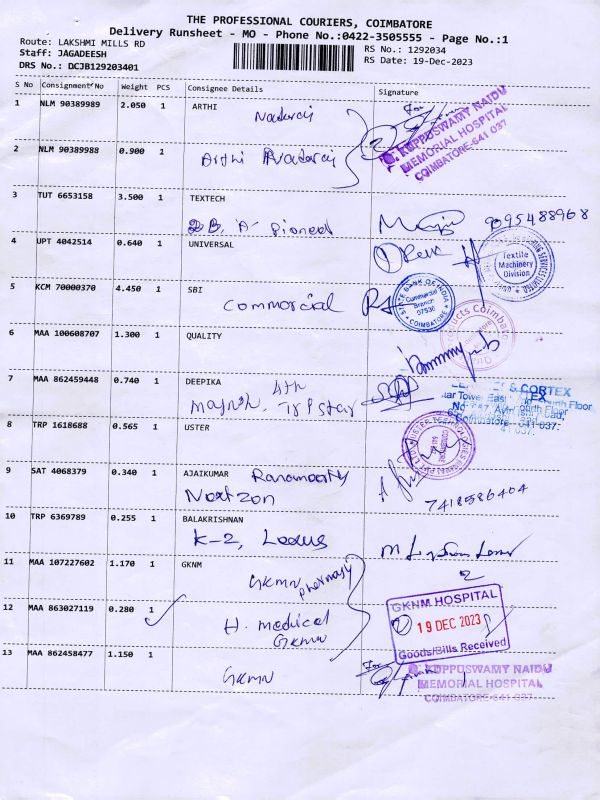 THE PROFESSIONAL COURIERS, COIMBATORE
Delivery Runsheet - MO - Phone No.:0422-3505555 - Page No.:1
Route: LAKSHMI MILLS RD
Staff: JAGADEESH
DRS No.: DCJB129203401
RS No.: 1292034
RS Date: 19-Dec-2023
S No Consignment No Weight PCS Consignee Details Signature
1 NLM 90389989 2.050 1 ARTHI
Nadaraj
For
KUPPUSWAMY NAIDU
MEMORIAL HOSPITAL
COIMBATORE-641 037
2 NLM 90389988 0.900 1
Arthi Nadaraj
3 TUT 6653158 3.500 1 TEXTECH
2B, "A" Pioneer
9095488968
4 UPT 4042514 0.640 1 UNIVERSAL
Textile
Machinery
Division
5 KCM 70000370 4.450 1 SBI
Commercial
STATE BANK OF INDIA
Commercial
Branch
07536
COIMBATORE
6 MAA 100608707 1.300 1 QUALITY
7 MAA 862459448 0.740 1 DEEPIKA
4th
& CORTEX
8 TRP 1618688 0.565 1 USTER
9 SAT 4068379 0.340 1 AJAIKUMAR Ranamoorty
Nextzon
7418586404
10 TRP 6369789 0.255 1 BALAKRISHNAN
K-2,
11 MAA 107227602 1.170 1 GKNM
GKMN pharmacy
2
12 MAA 863027119 0.280 1
H. medical
GKMN
GKNM HOSPITAL
19 DEC 2023
Goods/Bills Received
13 MAA 862458477 1.150 1
GKMN
For
KUPPUSWAMY NAIDU
MEMORIAL HOSPITAL
COIMBATORE-641 037